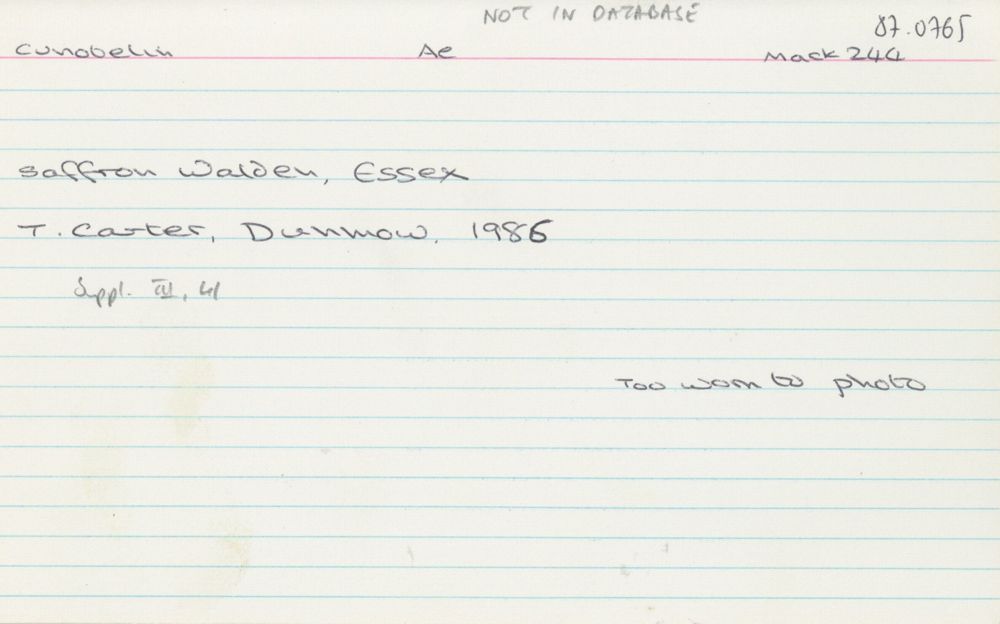 NOT IN DATABASE
87.0765
Cunobelin Ae Mack 244
Saffron Walden, Essex
T. Carter, Dunmow, 1986
Suppl. III, 41
Too worn to photo